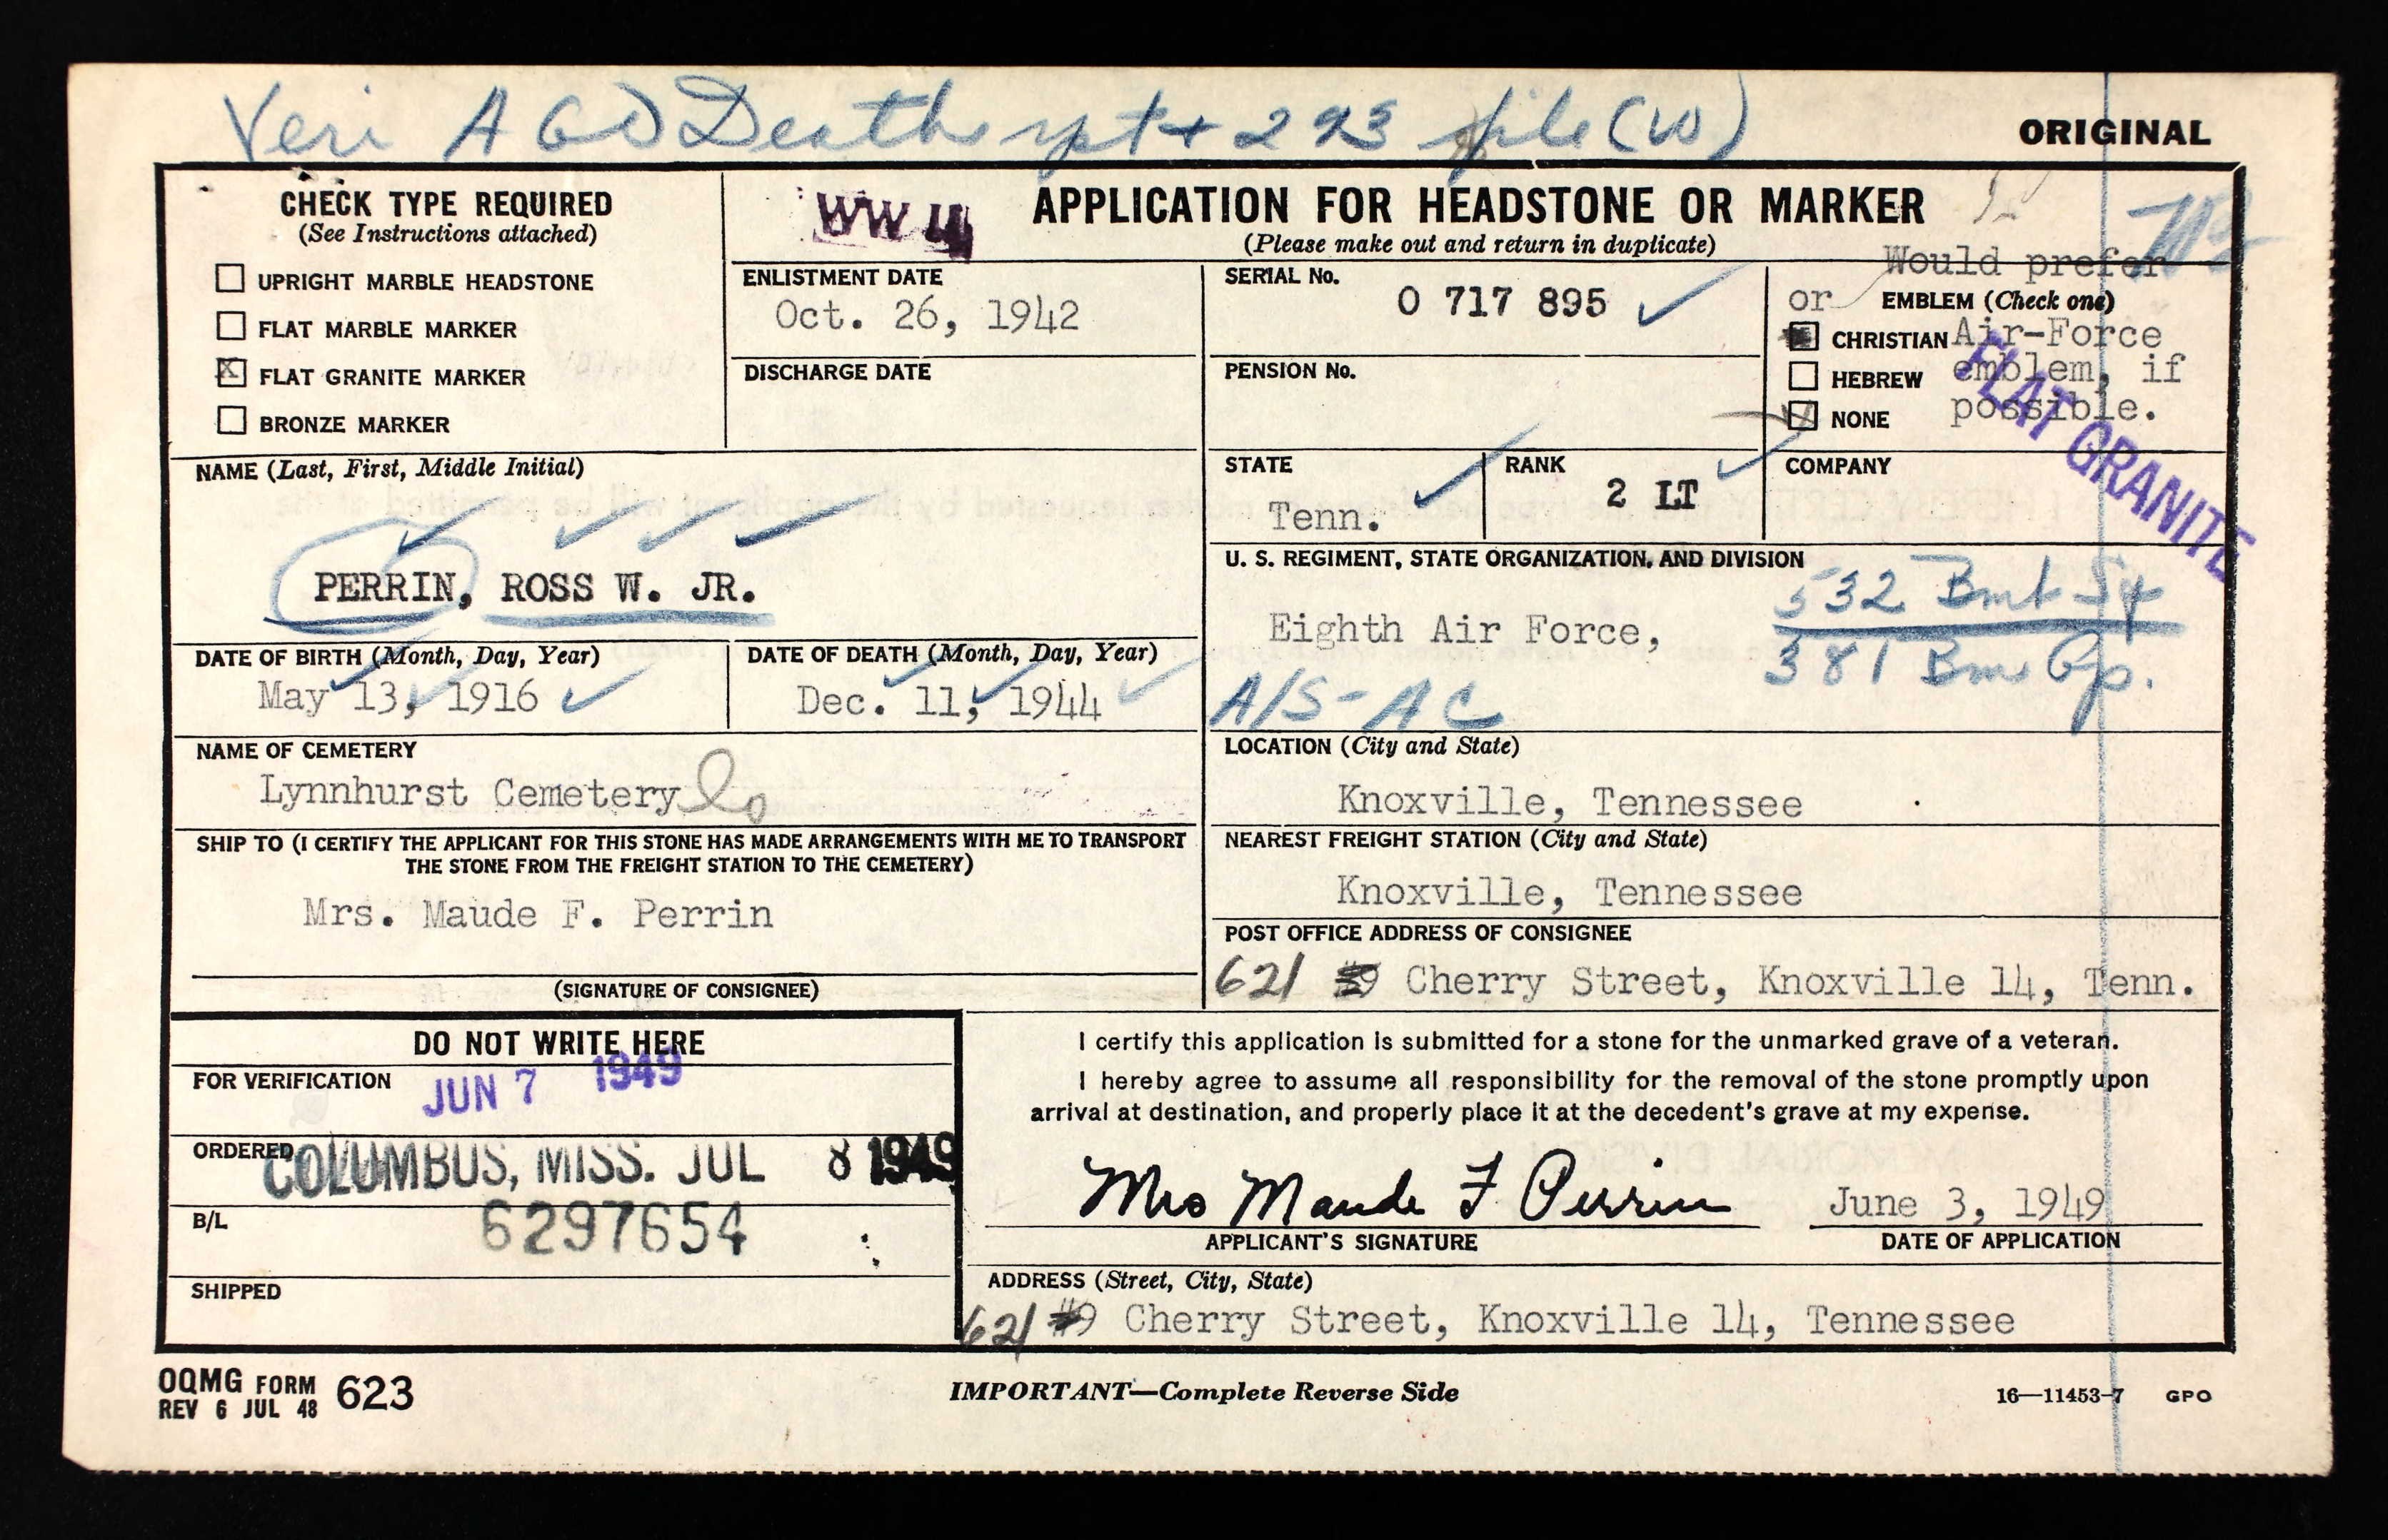 Veri AGO Death rpt + 293 file (W)
ORIGINAL
CHECK TYPE REQUIRED
(See Instructions attached)
UPRIGHT MARBLE HEADSTONE
FLAT MARBLE MARKER
X FLAT GRANITE MARKER
BRONZE MARKER
WW II
APPLICATION FOR HEADSTONE OR MARKER
(Please make out and return in duplicate)
ENLISTMENT DATE
Oct. 26, 1942
DISCHARGE DATE
SERIAL No.
O 717 895
PENSION No.
Would prefer
or EMBLEM (Check one)
CHRISTIAN Air-Force
HEBREW emblem, if
NONE possible.
FLAT GRANITE
NAME (Last, First, Middle Initial)
PERRIN, ROSS W. JR.
STATE
Tenn.
RANK
2 LT
COMPANY
U. S. REGIMENT, STATE ORGANIZATION, AND DIVISION
Eighth Air Force,
532 Bmb Sq
381 Bm Gp.
A/S-AC
DATE OF BIRTH (Month, Day, Year)
May 13, 1916
DATE OF DEATH (Month, Day, Year)
Dec. 11, 1944
NAME OF CEMETERY
Lynnhurst Cemetery
LOCATION (City and State)
Knoxville, Tennessee
SHIP TO (I CERTIFY THE APPLICANT FOR THIS STONE HAS MADE ARRANGEMENTS WITH ME TO TRANSPORT
THE STONE FROM THE FREIGHT STATION TO THE CEMETERY)
Mrs. Maude F. Perrin
(SIGNATURE OF CONSIGNEE)
NEAREST FREIGHT STATION (City and State)
Knoxville, Tennessee
POST OFFICE ADDRESS OF CONSIGNEE
621 #9 Cherry Street, Knoxville 14, Tenn.
DO NOT WRITE HERE
FOR VERIFICATION
JUN 7 1949
ORDERED
COLUMBUS, MISS. JUL 8 1949
B/L
6297654
SHIPPED
I certify this application is submitted for a stone for the unmarked grave of a veteran.
I hereby agree to assume all responsibility for the removal of the stone promptly upon
arrival at destination, and properly place it at the decedent's grave at my expense.
Mrs Maude F Perrin
June 3, 1949
APPLICANT'S SIGNATURE
DATE OF APPLICATION
ADDRESS (Street, City, State)
621 #9 Cherry Street, Knoxville 14, Tennessee
OQMG FORM 623
REV 6 JUL 48
IMPORTANT—Complete Reverse Side
16—11453-7 GPO